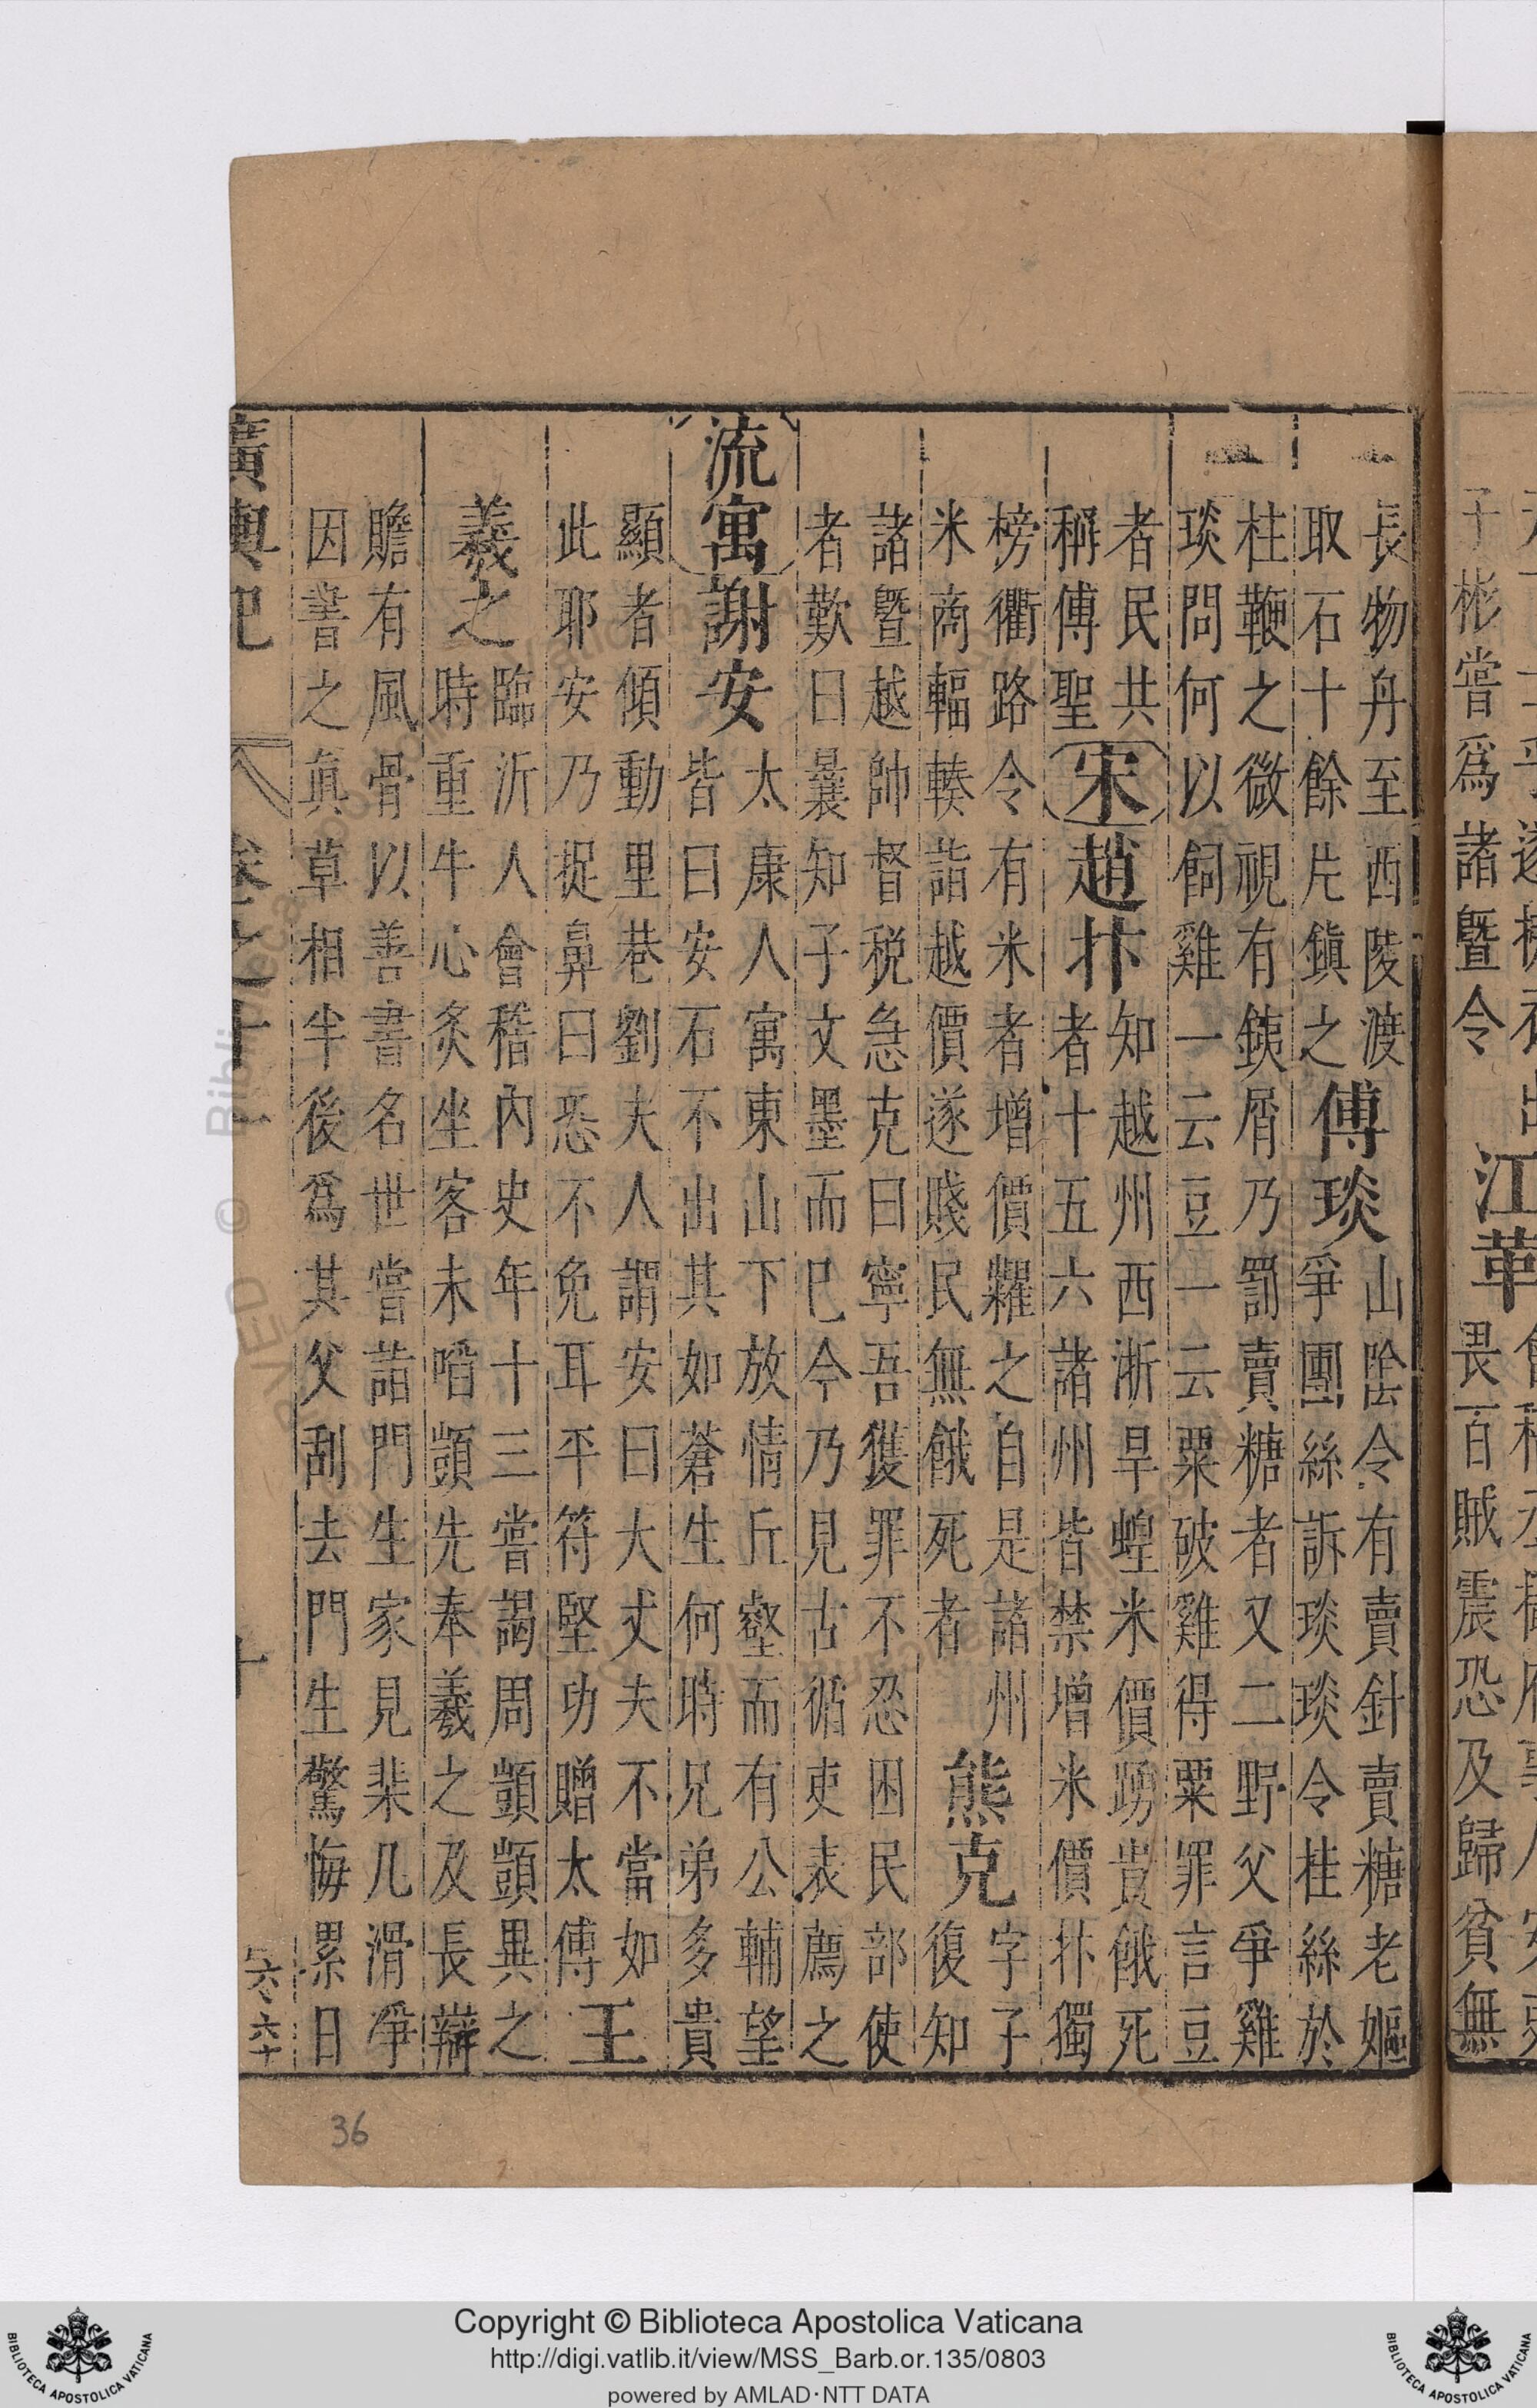 江革
子彬嘗爲諸暨令
畏百賊震恐及歸貧無
長物舟至西陵渡
取石十餘片鎮之
傅琰
山陰令有賣針賣糖老嫗
爭團絲訴琰琰令挂絲於
柱鞭之微視有鐵屑乃罰賣糖者又二野父爭雞
琰問何以飼雞一云豆一云粟破雞得粟罪言豆
者民共
稱傅聖
宋
趙抃
知越州西浙旱蝗米價踴貴餓死
者十五六諸州皆禁增米價抃獨
榜衢路令有米者增價糶之自是諸州
米商輻輳詣越價遂賤民無餓死者
熊克
字子
復知
諸暨越帥督稅急克曰寧吾獲罪不忍困民部使
者歎曰曩知子文墨而已今乃見古循吏表薦之
流寓
謝安
太康人寓東山下放情丘壑而有公輔望
皆曰安石不出其如蒼生何時兄弟多貴
顯者傾動里巷劉夫人謂安曰大丈夫不當如
此耶安乃捉鼻曰恐不免耳平符堅功贈太傅
王
羲之
臨沂人會稽內史年十三嘗謁周顗顗異之
時重牛心炙坐客未啗顗先奉羲之及長辯
贍有風骨以善書名世嘗詣門生家見棐几滑淨
因書之眞草相半後爲其父刮去門生驚悔累日
廣輿記
卷之十一
十
36
Copyright © Biblioteca Apostolica Vaticana
http://digi.vatlib.it/view/MSS_Barb.or.135/0803
powered by AMLAD·NTT DATA
BIBLIOTECA APOSTOLICA VATICANA
BIBLIOTECA APOSTOLICA VATICANA